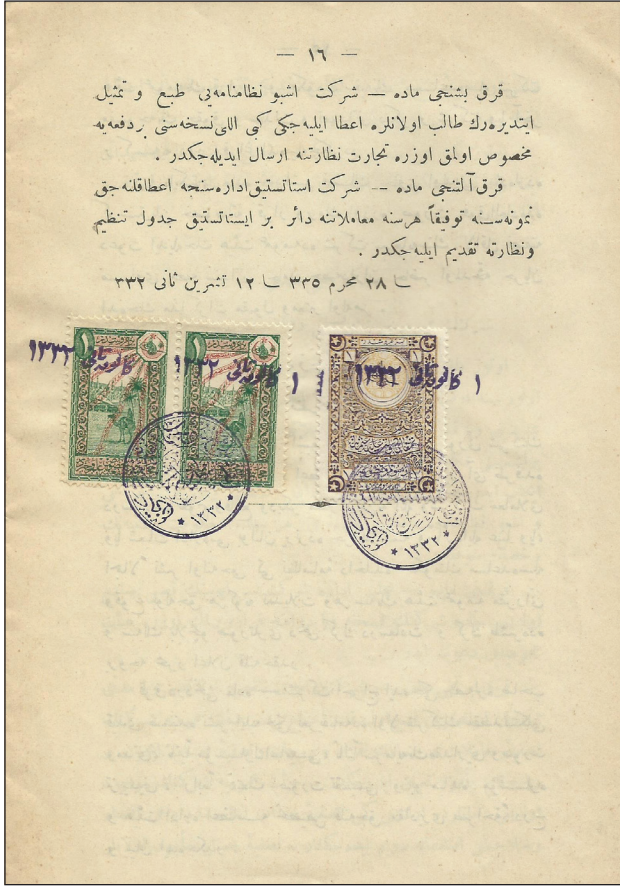 — ١٦ —
قرق بشنجی ماده — شركت اشبو نظامنامه‌یی طبع و تمثیل
ایتدیره‌رك طالب اولانلره اعطا ایلیه‌جكی كبی اللی نسخه‌سنی بردفعه‌یه
مخصوص اولمق اوزره تجارت نظارتنه ارسال ایدیله‌جكدر .
قرق آلتنجی ماده — شركت استاتستیق اداره‌سنجه اعطا قلنه‌جق
نمونه‌سنه توفیقاً هرسنه معاملاتنه دائر بر ایستاتستیق جدول تنظیم
ونظارته تقدیم ایلیه‌جكدر .
٢٨ محرم ٣٣٥ ١٢ تشرین ثانی ٣٣٢
كانون ثانی ١٣٣٢
١ كانون ثانی ١٣٣٢
١ كانون ثانی ١٣٣٢
١
١
١٣٣٢
١٣٣٢